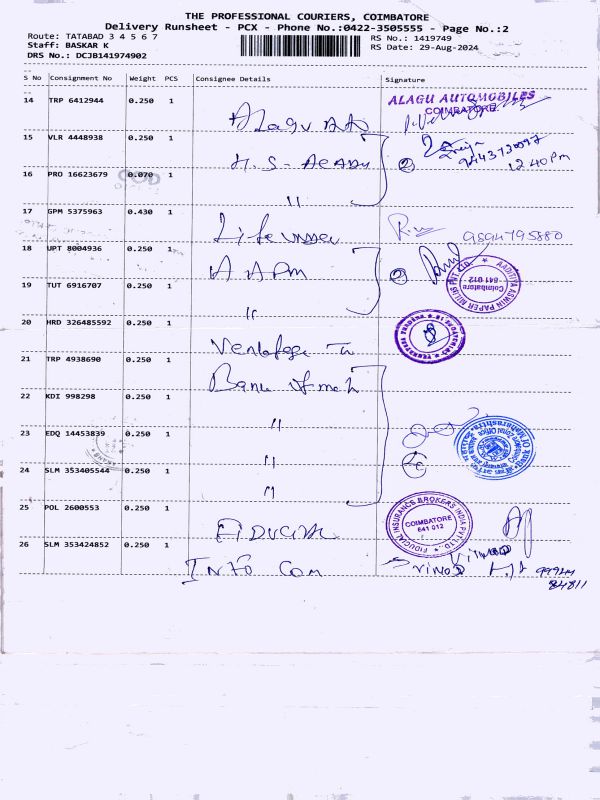 THE PROFESSIONAL COURIERS, COIMBATORE
Delivery Runsheet - PCX - Phone No.:0422-3505555 - Page No.:2
Route: TATABAD 3 4 5 6 7
RS No.: 1419749
Staff: BASKAR K
RS Date: 29-Aug-2024
DRS No.: DCJB141974902
S No Consignment No Weight PCS Consignee Details Signature
14 TRP 6412944 0.250 1 Alagu Auto ALAGU AUTOMOBILES
COIMBATORE
15 VLR 4448938 0.250 1 H.S-ACADY 2
12.40 Pm
16 PRO 16623679 0.070 1 "
COD
17 GPM 5375963 0.430 1 9894795880
18 UPT 8004936 0.250 1 AAPM 2
AADITYA ASWIN PAPER MILLS PVT. LTD.
Coimbatore
641 012
19 TUT 6916707 0.250 1 "
20 HRD 326485592 0.250 1
21 TRP 4938690 0.250 1 Bank of mah
22 KDI 998298 0.250 1 "
23 EDQ 14453839 0.250 1 "
24 SLM 353405544 0.250 1 "
25 POL 2600553 0.250 1 FIDUCIAL
FIDUCIAL INSURANCE BROKERS INDIA PVT LTD.
COIMBATORE
641 012
26 SLM 353424852 0.250 1 INFO Com
99944
84811